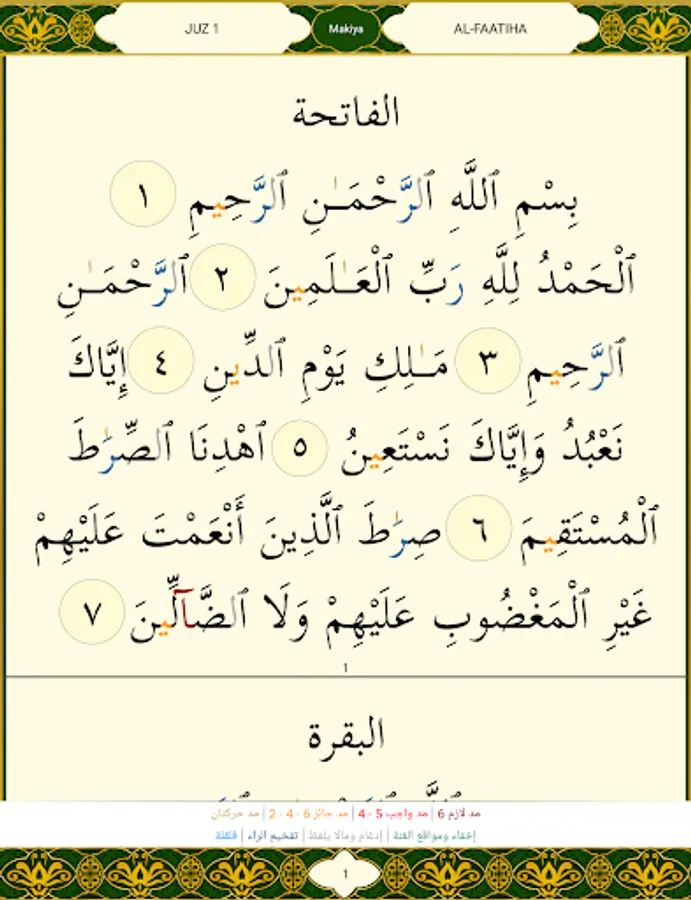 JUZ 1 Makiya AL-FAATIHA
الفاتحة
بِسْمِ ٱللَّهِ ٱلرَّحْمَـٰنِ ٱلرَّحِيمِ ١
ٱلْحَمْدُ لِلَّهِ رَبِّ ٱلْعَـٰلَمِينَ ٢ ٱلرَّحْمَـٰنِ
ٱلرَّحِيمِ ٣ مَـٰلِكِ يَوْمِ ٱلدِّينِ ٤ إِيَّاكَ
نَعْبُدُ وَإِيَّاكَ نَسْتَعِينُ ٥ ٱهْدِنَا ٱلصِّرَٰطَ
ٱلْمُسْتَقِيمَ ٦ صِرَٰطَ ٱلَّذِينَ أَنْعَمْتَ عَلَيْهِمْ
غَيْرِ ٱلْمَغْضُوبِ عَلَيْهِمْ وَلَا ٱلضَّآلِّينَ ٧
1
البقرة
مد لازم 6 | مد واجب 5 - 4 | مد جائز 6 - 4 - 2 | مد حركتان
إخفاء ومواقع الغنة | إدغام ومالا يلفظ | تفخيم الراء | قلقلة
1